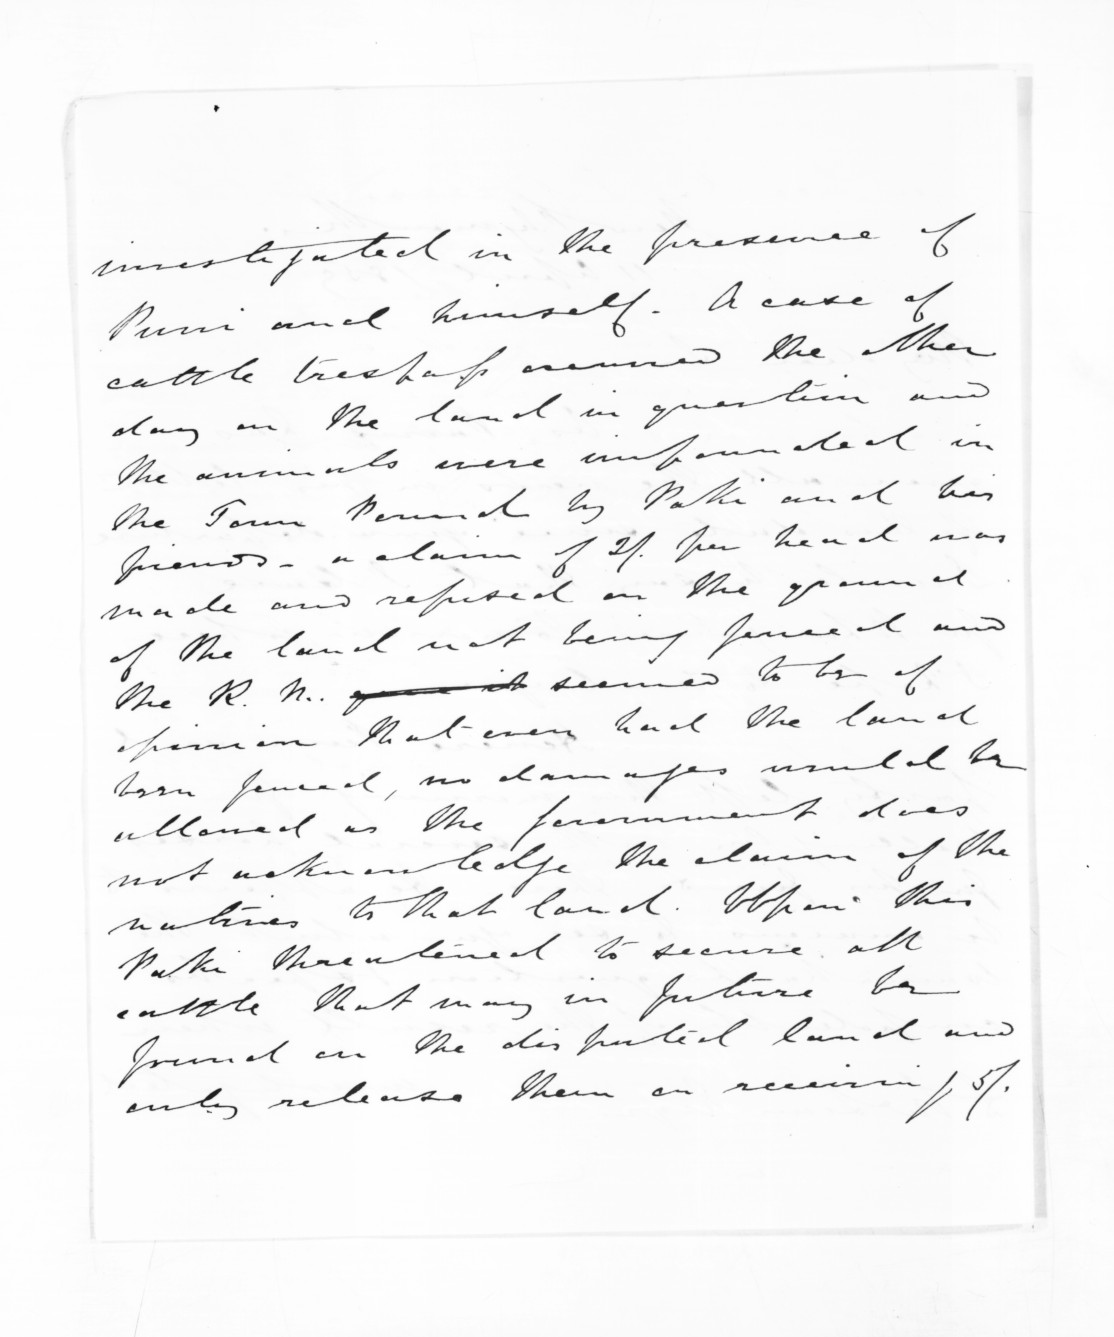 investigated in the presence of
Puni and himself. A case of
cattle trespass occurred the other
day on the land in question and
the animals were impounded in
the Town Pound by Paki and his
friends - a claim of 2/. per head was
made and refused on the ground
of the land not being fenced and
the R. M. seemed to be of
opinion that even had the land
been fenced, no damages would be
allowed as the Government does
not acknowledge the claim of the
natives to that land. Upon this
Paki threatened to secure all
cattle that may in future be
found on the disputed land and
only release them on receiving 5/.